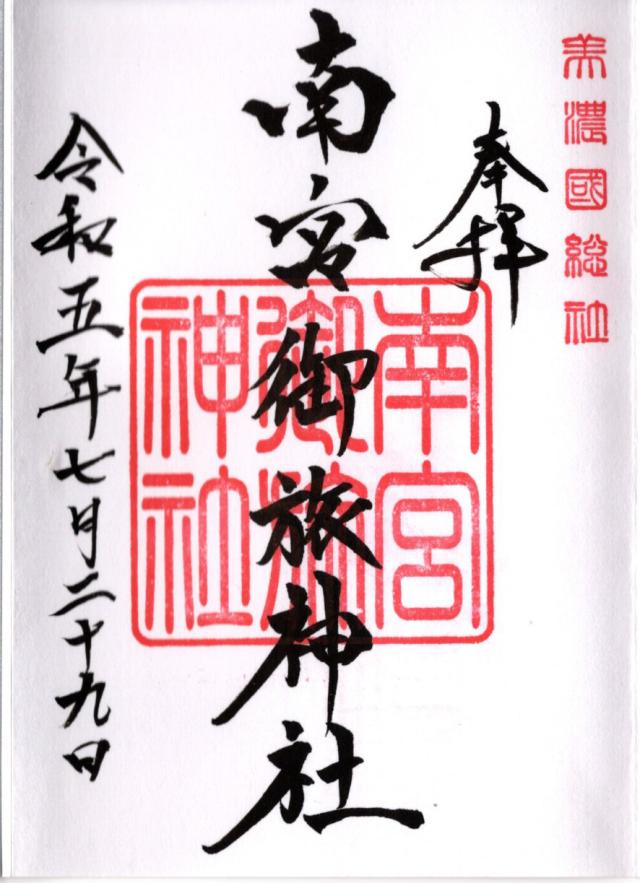 美濃國総社
奉拝
南宮御旅神社
南宮
御旅
神社
令和五年七月二十九日